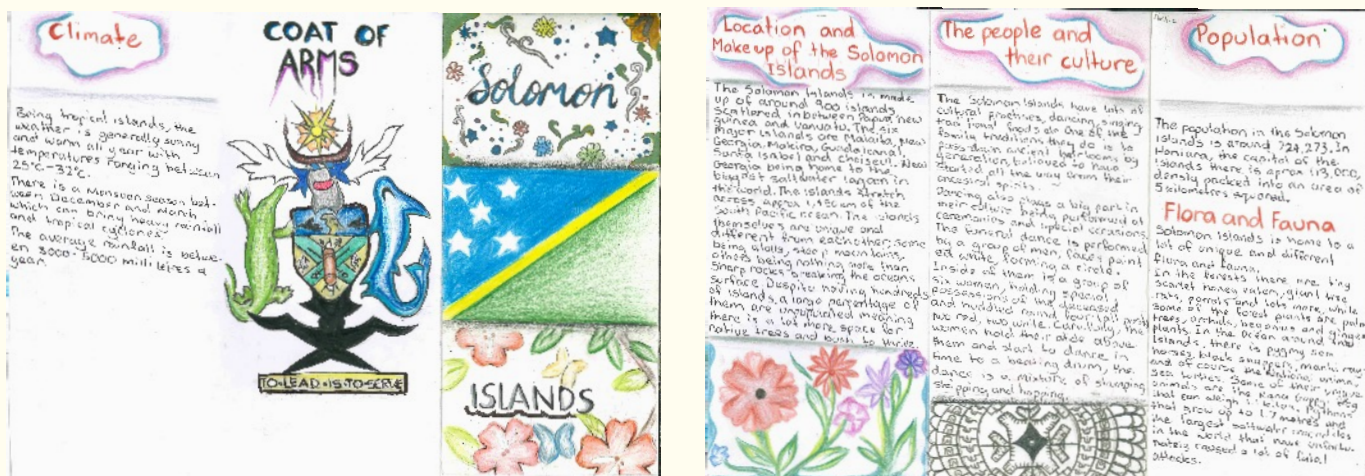 Climate
Being tropical islands, the
weather is generally sunny
and warm all year with
temperatures between
25°C-32°C.
There is a Monsoon season bet-
ween December and March
which can bring heavy rainfall
and tropical cyclones
The average rainfall is betwe-
en 3000-5000 milli letres a
year.
COAT OF
ARMS
TO·LEAD·IS·TO·SERVE
Solomon
ISLANDS
Location and
Makeup of the Solomon
Islands
The Solomon Islands is made
up of around 900 islands
scattered in between Papua new
guinea and vanuatu. The six
major islands are Malaita, New
Georgia, Makeira,
Santa isabel and New
Georgia being home to the
biggest saltwater lagoon in
the world. The islands stretch
across, aprox of the
South Pacific ocean. The islands
themselves are unique and
different from eachother; some
being steep mountains,
others being nothing more than
sharp rocks breaking the oceans
surface. Despite having hundreds
of islands, a large percentage of
them are meaning
there is a lot more space for
native trees and bush to thrive.
The people and
their culture
The Solomon Islands have lots of
cultural practises, dancing, singing
One of the
familie traditions they do is to
pass down ancient heirlooms by
generation, believed to have
started all the way from their
ancestral spirits.
Dancing also plays a big part in
their culture being performed at
ceremonies and special occasions.
The funeral dance is performed
by a group of men, faces paint
ed white, forming a circle.
Inside of them is a group of
six women, holding special
possessions of the deceased
and huddled round four
two red, two white. the
women hold their above
them and start to dance in
time to a beating drum, the
dance is a mixture of stomping,
stepping and hopping.
Population
The population in the Solomon
islands is around 724,273. In
Honiara, the capital of the
islands there is aprox 113,000,
densly packed into an area of
5 kilometres squared.
Flora and Fauna
Solomon Islands is home to a
lot of unique and different
flora and fauna.
In the forests there are tiny
scarlet honey eaters, giant tree
rats, and lots more, while
some of the forest plants are palm
trees, orchids, begonias and ginger
plants. In the ocean around the
Islands, there is pygmy sea
horses, black snappers, manta rays
and of course the national animal,
sea turtles. Some of their unique
animals are the
that can weigh pythons
that grow up to 1.7 metres and
the largest saltwater crocodiles
in the world that have unfortu-
nately caused a lot of fatal
attacks.